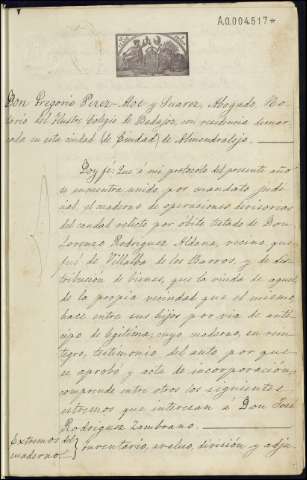 A.0.004.517*
Don Gregorio Perez-Aloe y Suarez, Abogado, No-
tario del Ilustre Colegio de Badajoz, con residencia demar-
cada en esta ciudad (de Ciudad) de Almendralejo.
Doy fé: Que á mi protocolo del presente año
se encuentra unido, por mandato judi-
cial, el cuaderno de operaciones divisorias
del caudal relicto por óbito testado de Don
Lorenzo Rodriguez Aldana, vecino que
fué de Villalba de los Barros, y de dis-
tribución de bienes, que la viuda de aquel
de la propia vecindad que el mismo,
hace entre sus hijos por via de antici-
po de legítima; cuyo cuaderno, su rein-
tegro, testimonio del auto por que
se aprobó y acta de incorporación,
comprende entre otros los siguientes
extremos que interesan á Don José
Rodriguez Zambrano.
Extremos del
cuaderno } inventario, avaluo, división y adju-